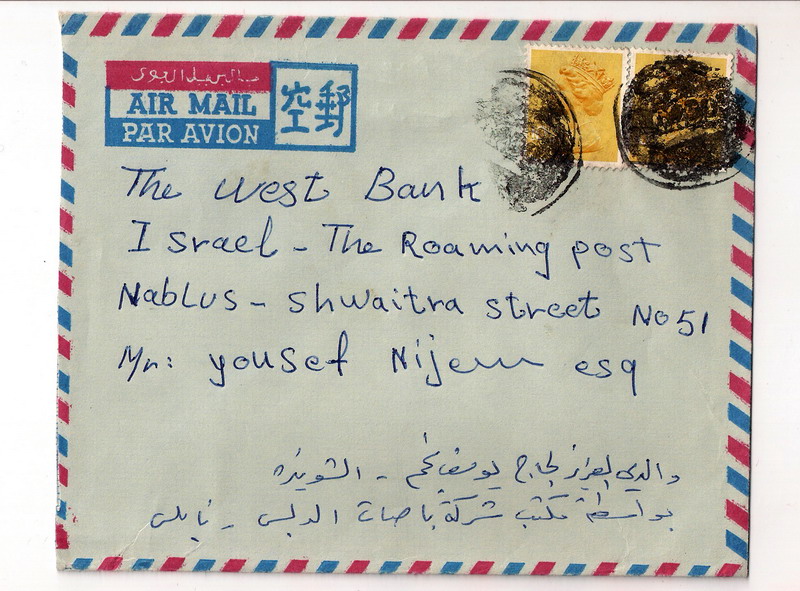 البريد الجوى
AIR MAIL
PAR AVION
空郵
The West Bank
Israel - The Roaming post
Nablus - Shwaitra street No 51
Mr: yousef Nijem esq
والدي العزيز الحاج يوسف نجم - الشويتره
بواسطة مكتب شركة باصات - نابلس